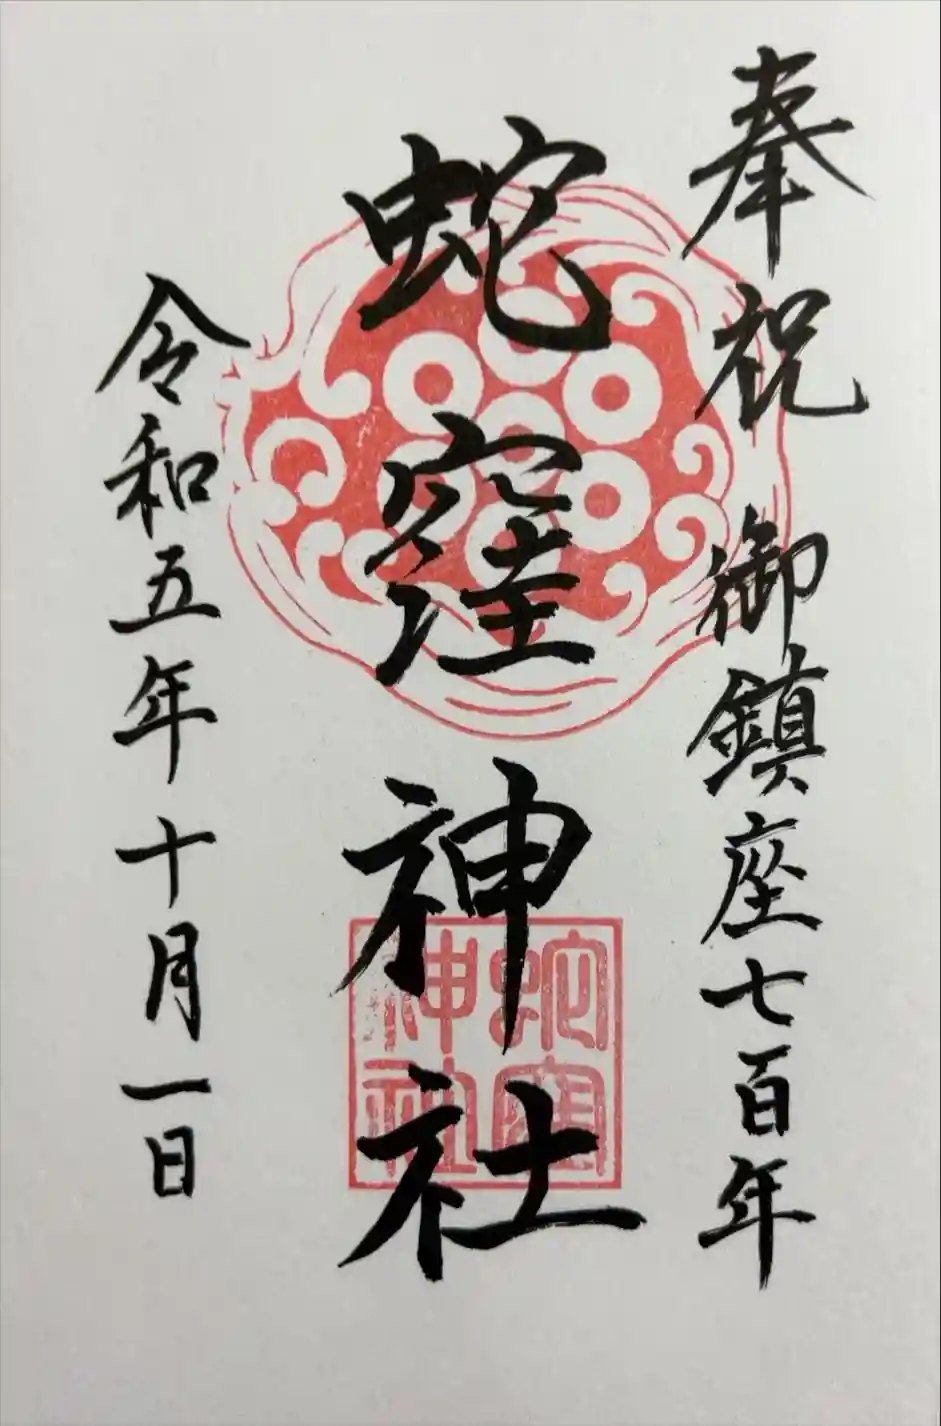 奉祝 御鎮座七百年
蛇窪神社
蛇窪
神社
令和五年十月一日